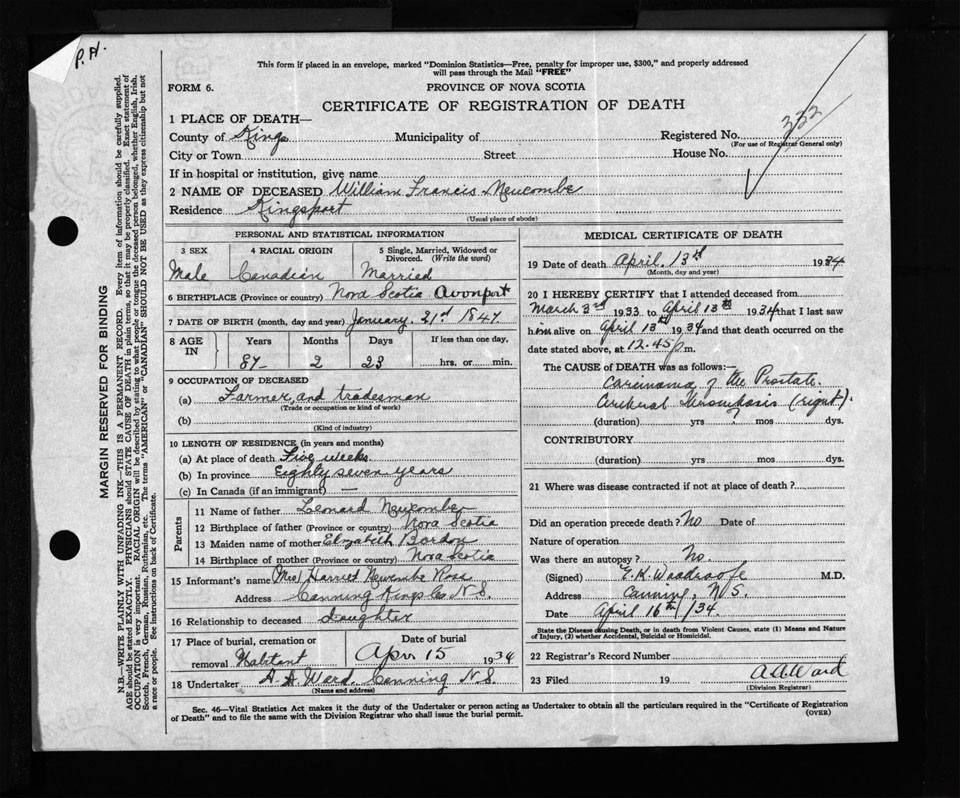 P.H.
This form if placed in an envelope, marked "Dominion Statistics—Free, penalty for improper use, $300," and properly addressed
will pass through the Mail "FREE"
FORM 6.
PROVINCE OF NOVA SCOTIA
CERTIFICATE OF REGISTRATION OF DEATH
MARGIN RESERVED FOR BINDING
N.B.—WRITE PLAINLY WITH UNFADING INK—THIS IS A PERMANENT RECORD. Every item of information should be carefully supplied.
AGE should be stated EXACTLY. PHYSICIANS should STATE CAUSE OF DEATH in plain terms, so that it may be properly classified. Exact statement of
OCCUPATION is very important. RACIAL ORIGIN will be described by stating to what people or tongue the deceased person belonged, whether English, Irish,
Scotch, French, German, Russian, Ruthenian, etc. The terms "AMERICAN" or "CANADIAN" SHOULD NOT BE USED as they express citizenship but not
a race or people. See instructions on back of Certificate.
1 PLACE OF DEATH—
County of Kings Municipality of Registered No. 332
(For use of Registrar General only)
City or Town Street House No.
If in hospital or institution, give name
2 NAME OF DECEASED William Francis Newcombe
Residence Kingsport
(Usual place of abode)
PERSONAL AND STATISTICAL INFORMATION
3 SEX 4 RACIAL ORIGIN 5 Single, Married, Widowed or
Divorced. (Write the word)
Male Canadian Married
6 BIRTHPLACE (Province or country) Nova Scotia Avonport
7 DATE OF BIRTH (month, day and year) January. 21st 1847
8 AGE
IN
Years Months Days If less than one day,
87 2 23 hrs. or min.
9 OCCUPATION OF DECEASED
(a) Farmer and tradesman
(Trade or occupation or kind of work)
(b)
(Kind of industry)
10 LENGTH OF RESIDENCE (in years and months)
(a) At place of death Five weeks
(b) In province Eighty seven years
(c) In Canada (if an immigrant) —
Parents
11 Name of father Leonard Newcombe
12 Birthplace of father (Province or country) Nova Scotia
13 Maiden name of mother Elizabeth Bordon
14 Birthplace of mother (Province or country) Nova Scotia
15 Informant's name Mrs Harriet Newcombe Rose
Address Canning Kings Co N.S.
16 Relationship to deceased daughter
17 Place of burial, cremation or
removal Habitant
Date of burial
Apr 15 1934
18 Undertaker A A Ward. Canning N.S.
(Name and address)
MEDICAL CERTIFICATE OF DEATH
19 Date of death April. 13th 1934
(Month, day and year)
20 I HEREBY CERTIFY that I attended deceased from
March 3rd 1933 to April 13th 1934 that I last saw
him alive on April 13th 1934 and that death occurred on the
date stated above, at 12.45 p m.
The CAUSE of DEATH was as follows:—
Carcinoma of the Prostate.
Cerebral Thrombosis (right).
(duration) yrs mos dys.
CONTRIBUTORY
(duration) yrs mos dys.
21 Where was disease contracted if not at place of death?
Did an operation precede death? No Date of
Nature of operation
Was there an autopsy? No.
(Signed) E.K. Woodroofe M.D.
Address Canning, N.S.
Date April 16th /34.
State the Disease causing Death, or in death from Violent Causes, state (1) Means and Nature
of Injury, (2) whether Accidental, Suicidal or Homicidal.
22 Registrar's Record Number
23 Filed 19 A A Ward
(Division Registrar)
Sec. 46—Vital Statistics Act makes it the duty of the Undertaker or person acting as Undertaker to obtain all the particulars required in the "Certificate of Registration
of Death" and to file the same with the Division Registrar who shall issue the burial permit.
(OVER)